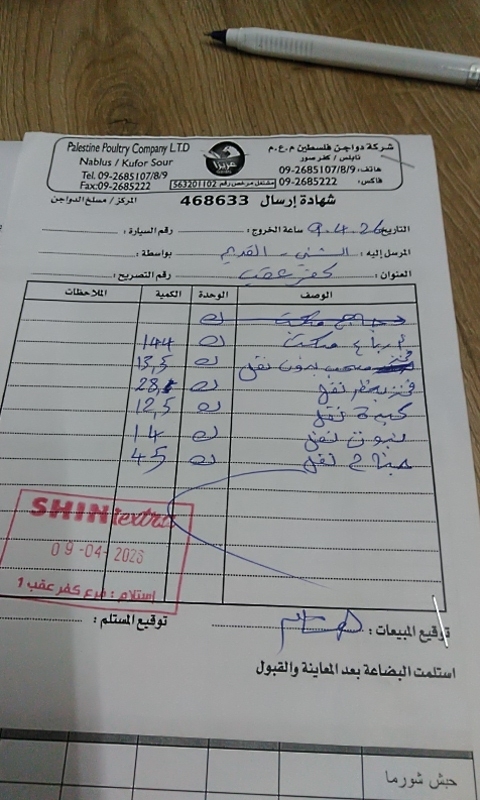 Palestine Poultry Company L.T.D
Nablus / Kufor Sour
Tel. 09-2685107/8/9
Fax:09-2685222
عزيزا
مشتغل مرخص رقم 563201102
شركة دواجن فلسطين م.ع.م
نابلس / كفر صور
هاتف: 09-2685107/8/9
فاكس: 09-2685222
شهادة إرسال 468633
المركز / مسلخ الدواجن
التاريخ: 9.4.26 ساعة الخروج: رقم السيارة:
المرسل إليه: الشني - القديم بواسطة:
العنوان: كفر عقب رقم التصريح:
الوصف الوحدة الكمية الملاحظات
ك
144 ك
فخذ منحب بدون نقل ك 13,5
فخذ نقل ك 28,
كبدة نقل ك 12,5
نقل ك 14
جناح نقل ك 45
SHINI extra
09-04-2026
استلام : فرع كفر عقب 1
توقيع المبيعات : توقيع المستلم :
استلمت البضاعة بعد المعاينة والقبول
حبش شورما